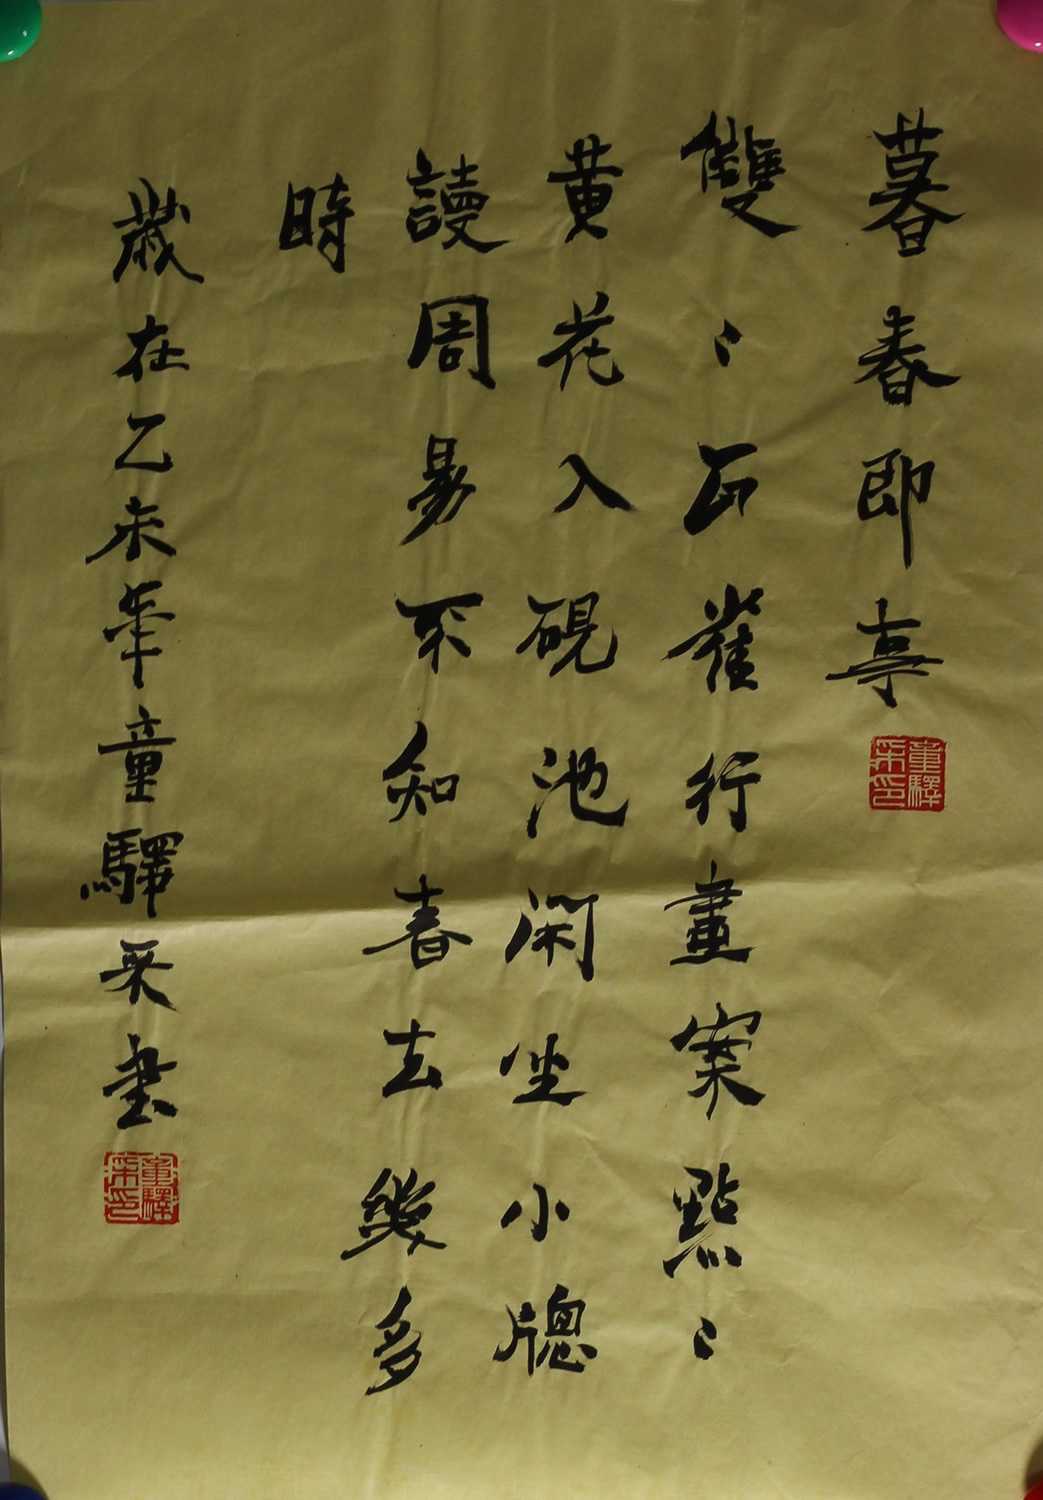 暮春即事
童驛采印
雙〻瓦雀行畫案點〻
黃花入硯池閑坐小牕
讀周易不知春去幾多
時
歲在乙未年童驛采書
童驛采印